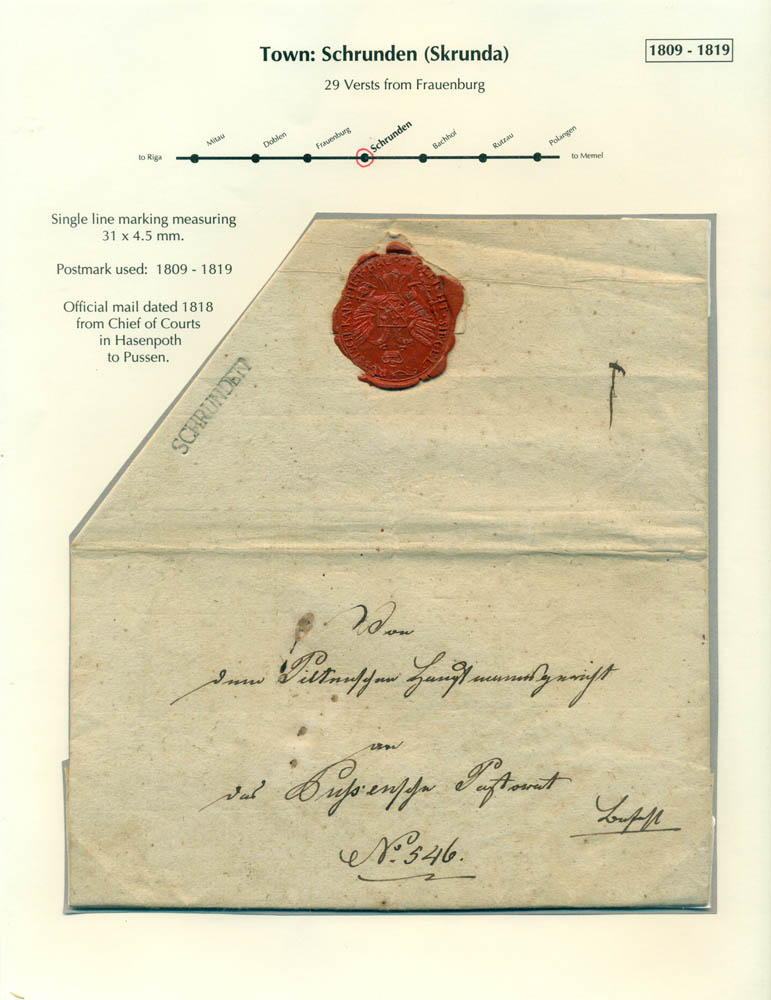 Town: Schrunden (Skrunda)
1809 - 1819
29 Versts from Frauenburg
to Riga
Mitau
Doblen
Frauenburg
Schrunden
Bachhof
Rutzau
Polangen
to Memel
Single line marking measuring
31 x 4.5 mm.
Postmark used: 1809 - 1819
Official mail dated 1818
from Chief of Courts
in Hasenpoth
to Pussen.
SCHRUNDEN
Von
dem Piltenschen Hauptmannsgericht
an
das Pussensche Pastorat
Befehl
No. 546.